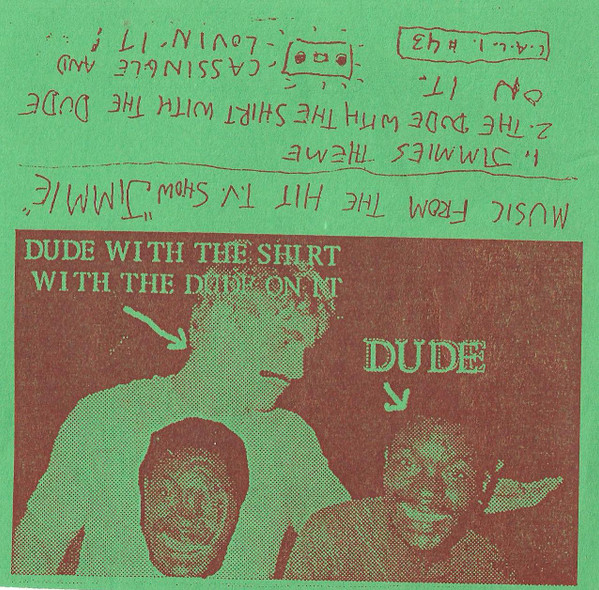 MUSIC FROM THE HIT T.V. SHOW "JIMMIE"
1. JIMMIES THEME
2. THE DUDE WITH THE SHIRT WITH THE DUDE
ON IT.
CASSINGLE AND
LOVIN' IT!
C.A.L.I. #43
DUDE WITH THE SHIRT
WITH THE DUDE ON IT
DUDE